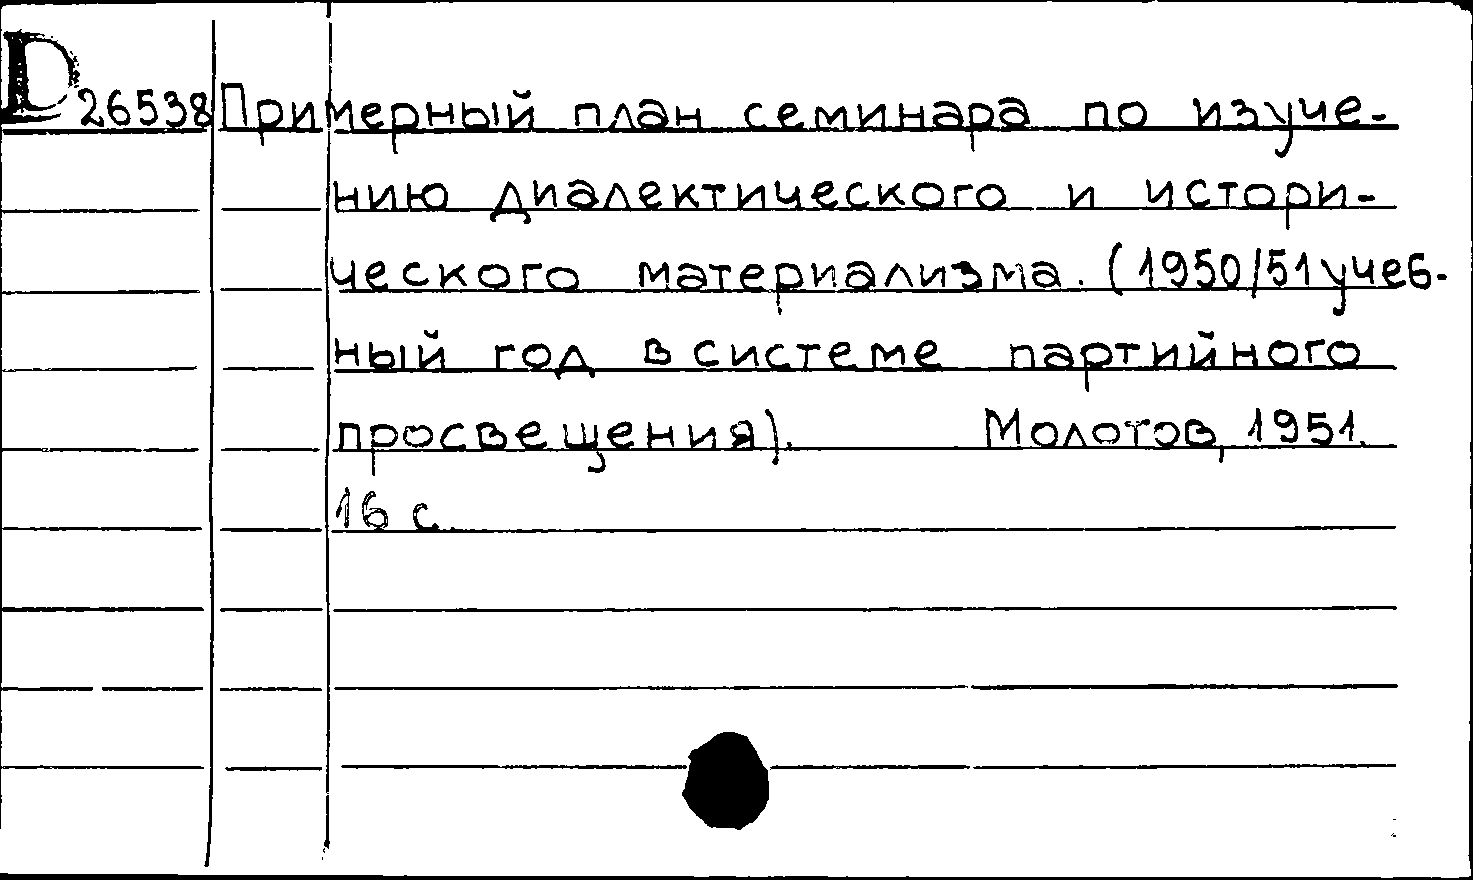 D 26538 Примерный план семинара по изуче-
нию диалектического и истори-
ческого материализма. (1950/51 учеб-
ный год в системе партийного
просвещения). Молотов, 1951.
16 с.